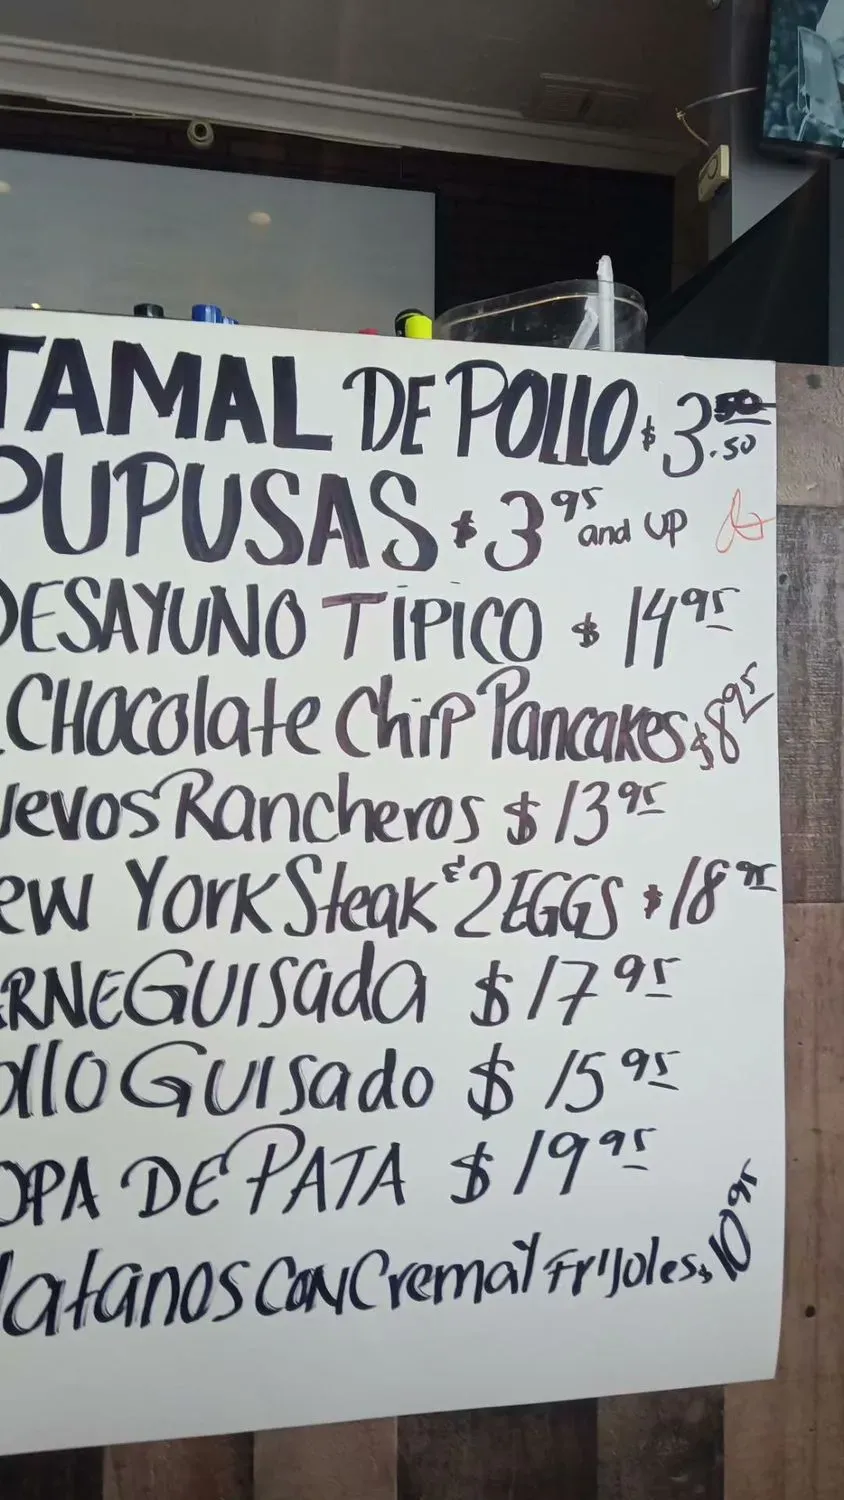 TAMAL DE POLLO $3.50
PUPUSAS $3 95 and up
DESAYUNO TIPICO $ 14 95
CHocolate Chip Pancakes $8 95
uevos Rancheros $13 95
ew York Steak & 2 EGGS $18 95
ARNE GUISada $17 95
ollo GUISado $15 95
OPA DE PATA $19 95
latanos CON Crema Y Frijoles $10 95